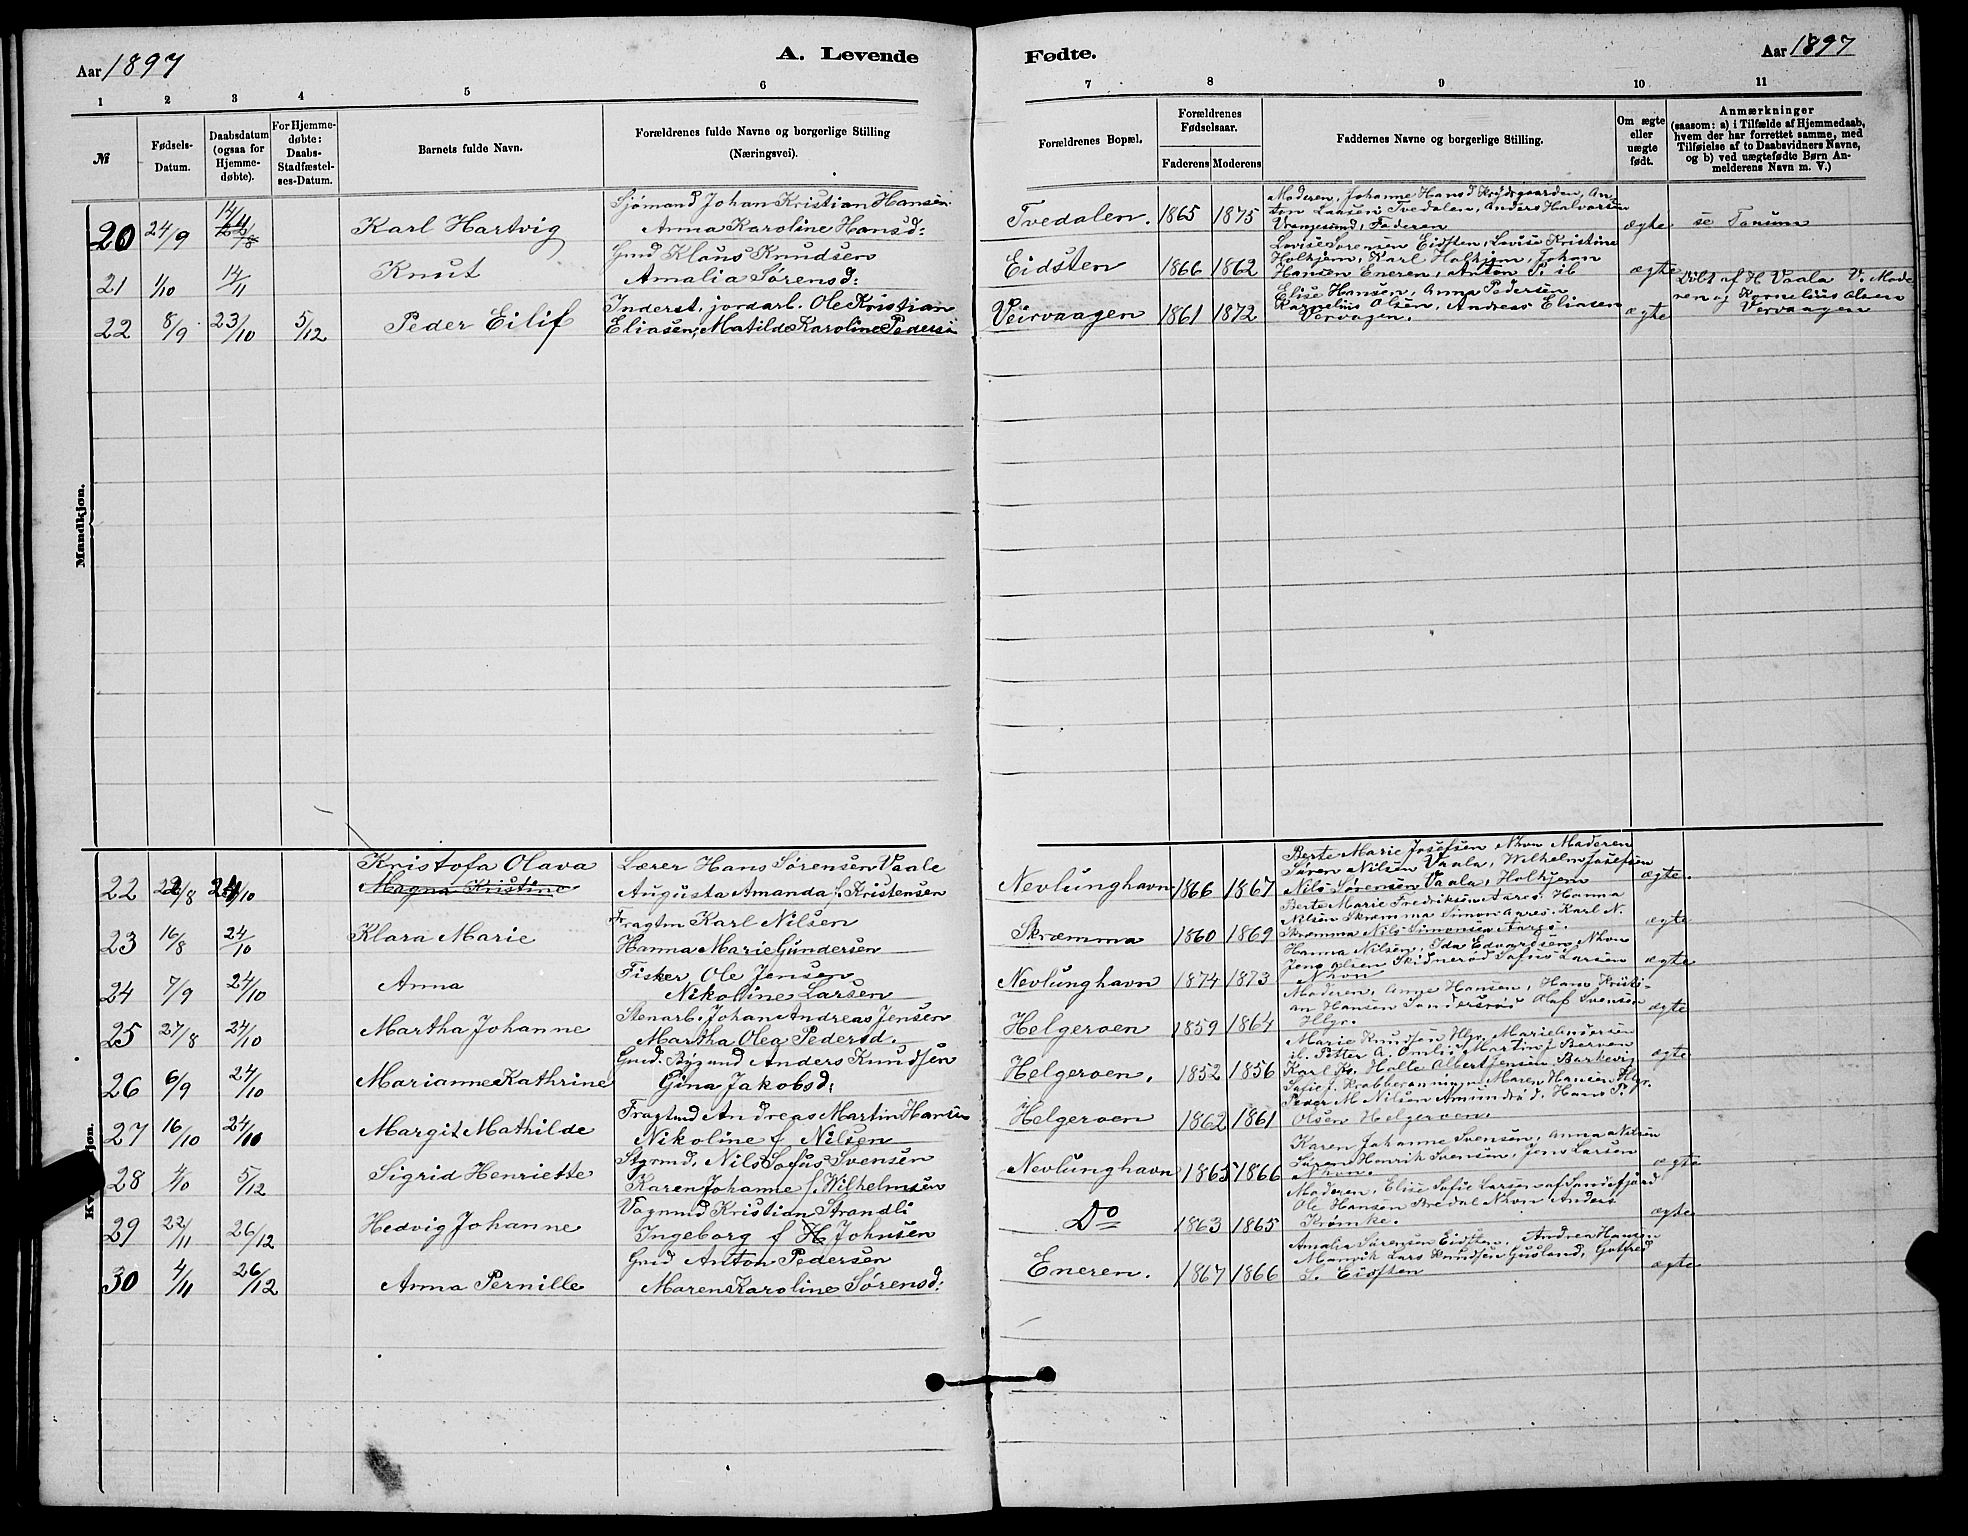 Aar 1897
A. Levende
Fødte.
Aar 1897
1 2 3 4 5 6 7 8 9 10 11
№
Fødsels-Datum.
Daabsdatum (ogsaa for Hjemme-døbte).
For Hjemme-døbte: Daabs-Stadfæstel-ses-Datum.
Barnets fulde Navn.
Forældrenes fulde Navne og borgerlige Stilling (Næringsvei).
Forældrenes Bopæl.
Forældrenes Fødselsaar.
Faderens Moderens
Faddernes Navne og borgerlige Stilling.
Om ægte eller uægte født.
Anmærkninger
(saasom: a) i Tilfælde af Hjemmedaab,
hvem der har forrettet samme, med
Tilføielse af to Daabsvidners Navne,
og b) ved uægtefødte Børn An-
melderens Navn m. V.)
Mandkjøn.
Sjømand Johan Kristian Hansen
20 24/9 14/11 Karl Hartvig Anna Karoline Hansd:
Tvedalen. 1865 1875
Moderen, Johanne Hansd
ton Larsen Tvedalen, Anders Halvorsen
Vranjesund, Faderen
ægte se Tanum
Gmd Klaus Knudsen
21 1/10 14/11 Knut Amalia Sørensd:
Eidsten 1866 1862
Lovise Sørensen Eidsten, Lovise Kristine
Holhjem, Karl Holhjem, Johan
Hansen Eneren, Anton P. ib
ægte
Inderst, jordarb. Ole Kristian
22 8/9 23/10 5/12 Peder Eilif Eliasen, Matilde Karoline Pedersen
Veirvaagen 1861 1872
Elise Hansen, Anna Pedersen
Kornelius Olsen, Andreas Eliasen
Vervagen.
ægte
Døbt af H Vaala V. Mode
ren og Kornelius Olsen
Vervaagen
Kristofa Olava Lærer Hans Sørensen Vaale
22 22/8 24/10 Magna Kristine Augusta Amanda f. Kristensen
Nevlunghavn 1866 1867
Berte Marie Josefsen Nhvn Moderen
Søren Nilsen Vaala, Wilhelm Josefsen
Nils Sørensen Vaala, Holhjem
ægte.
Fragtm Karl Nilsen
23 16/8 24/10 Klara Marie Hanna Marie Gundersen
Skræmma 1860 1869
Berte Marie Fredriksen Aarøs. Hanna
Nilsen Skræmma Simon Aarøs. Karl N.
Skræmma Nils Simonsen Aarøs.
ægte
Fisker Ole Jensen
24 7/9 24/10 Anna Nikoline Larsen
Nevlunghavn 1874 1873
Hanna Nilsen, Ida Edvardsen Nhvn
Jens Olsen Skidnerød Sofus Larsen
Nhvn
ægte
Stenarb. Johan Andreas Jensen
25 27/8 24/10 Martha Johanne Martha Olea Pedersd.
Helgeroen 1859 1864
Moderen, Anne Hansen, Hans Kristi-
an Hansen Sandersrød Olaf Svensen
Hlgr.
ægte
Gmd. Bygmd Anders Knudsen
26 6/9 24/10 Marianne Kathrine Gina Jakobsd:
Helgeroen. 1852 1856
Marie Knudsen Hlgr, Marie Andersen
ib. Petter A. Omlid, Martin J Berven
ægte
Fragtmd Andreas Martin Hansen
27 16/10 24/10 Margit Mathilde Nikoline f Nilsen
Helgeroen 1862 1861
Peder M Nilsen Amundrød. Hans P.
Olsen Helgeroen.
Styrmd, Nils Sofus Svensen
28 4/10 5/12 Sigrid Henriette Karen Johanne f. Wilhelmsen
Nevlunghavn 1865 1866
Karen Johanne Svensen, Anna Nilsen
Søren Henrik Svensen, Jens Larsen
Nhvn.
ægte
Vognmd Kristian Strandli
29 22/11 26/12 Hedvig Johanne Ingeborg f H Johnsen
Do 1863 1865
Moderen, Elise Sofie Larsen af Sandefjord
Ole Hansen Bredal Nhvn Anders
Krømke.
ægte
Gmd Anton Pedersen
30 4/11 26/12 Anna Pernille Maren Karoline Sørensd:
Eneren. 1867 1866
Amalia Sørensen Eidsten, Andrea Hansen
Manvik Lars Knudsen Gusland, Gotfred
S. Eidsten
ægte